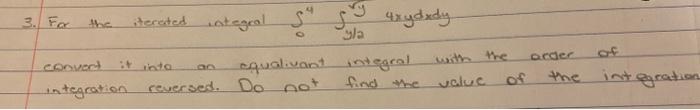 3. For the iterated integral ∫₀⁴ ∫_{y/2}^{√y} 4xydxdy
convert it into an equalivant integral with the order of
integration reversed. Do not find the value of the integration